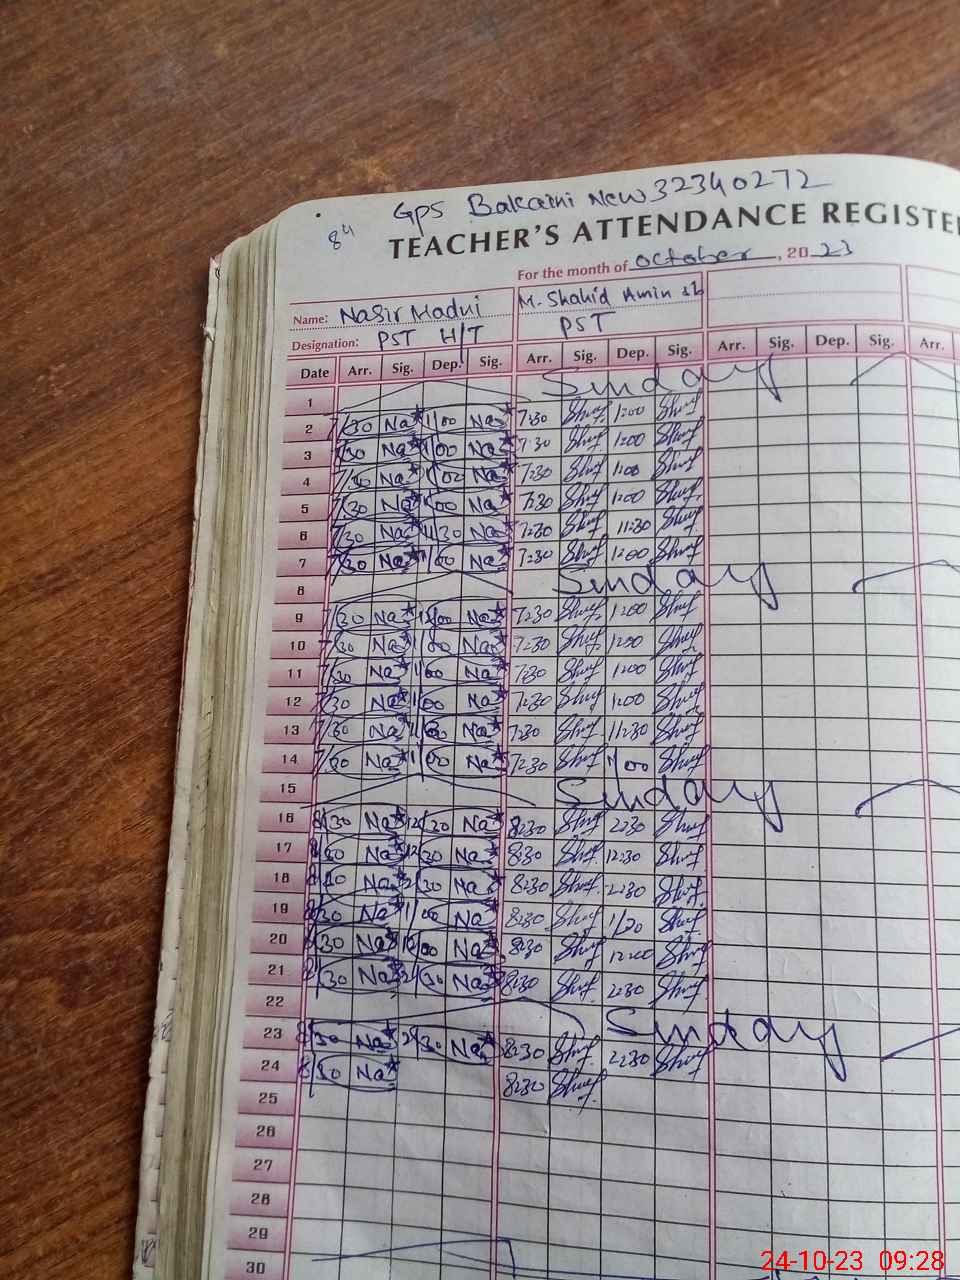 GPS Bakaini New 32340272
84
TEACHER'S ATTENDANCE REGISTE
For the month of October, 2023
Name: Nasir Madni M. Shahid Amin sb
Designation: PST H/T PST
Date Arr. Sig. Dep. Sig. Arr. Sig. Dep. Sig. Arr. Sig. Dep. Sig. Arr.
1 Sunday
2 7/30 Na 1/00 Na 7:30 1:00
3 7/30 Na 1/00 Na 7:30 1:00
4 7/30 Na 1/00 Na 7:30 1:00
5 7/30 Na 1/00 Na 7:30 1:00
6 7/30 Na 11/30 Na 7:30 11:30
7 7/30 Na 1/00 Na 7:30 1:00
8 Sunday
9 7/30 Na 1/00 Na 7:30 1:00
10 7/30 Na 1/00 Na 7:30 1:00
11 7/30 Na 1/00 Na 7:30 1:00
12 7/30 Na 1/00 Na 7:30 1:00
13 7/30 Na Na 7:30 11:30
14 7/30 Na 1/00 Na 7:30 1/00
15 Sunday
16 8/30 Na 2/30 Na 8:30 2:30
17 8/30 Na Na 8:30
18 8/30 Na 2/30 Na 8:30 2:30
19 8/30 Na Na 8:30
20 8/30 Na Na 8:30
21 8/30 Na 2/30 Na 8:30 2:30
22 Sunday
23 8/30 Na 2/30 Na 8:30 2:30
24 8/30 Na 8:30
25
26
27
28
29
30
24-10-23 09:28